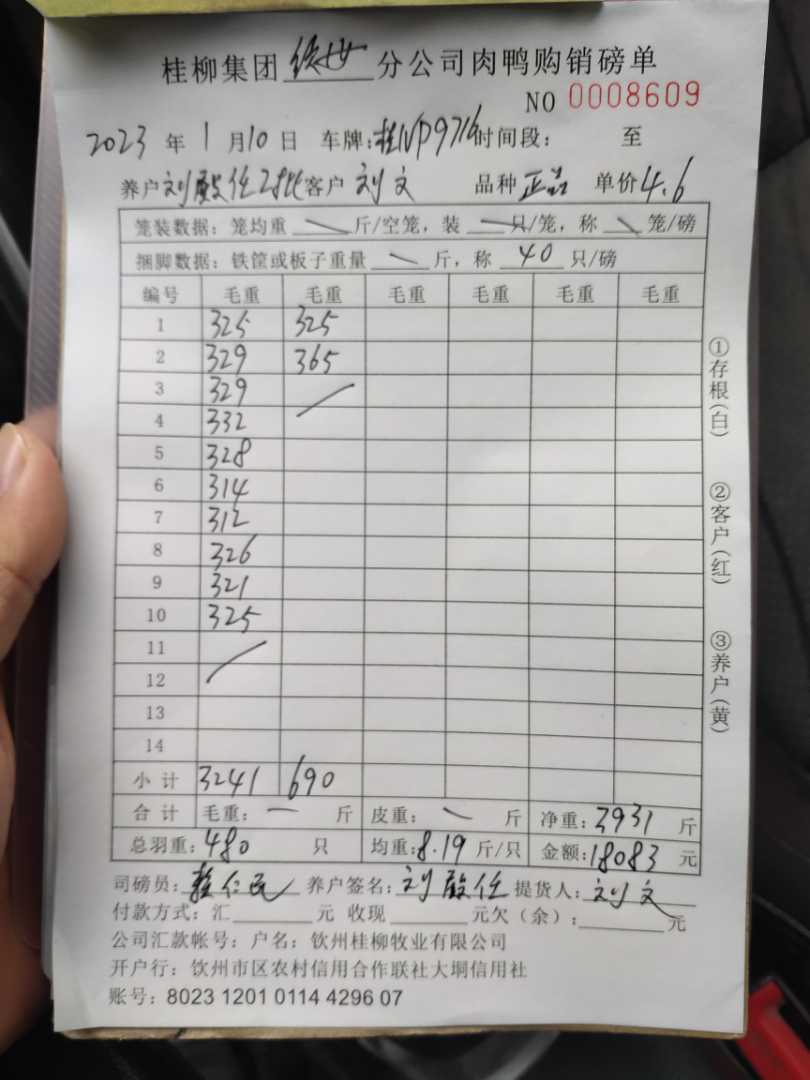 桂柳集团 分公司肉鸭购销磅单
NO 0008609
2023 年 1 月 10 日 车牌:桂NP9716 时间段: 至
养户 刘殿任28批 客户 刘文 品种 正品 单价 4.6
笼装数据: 笼均重 斤/空笼, 装 只/笼, 称 笼/磅
捆脚数据: 铁筐或板子重量 斤, 称 40 只/磅
编号 毛重 毛重 毛重 毛重 毛重 毛重
1 325 325
2 329 365
3 329
4 332
5 328
6 314
7 312
8 326
9 321
10 325
11
12
13
14
小计 3241 690
合计 毛重: 一 斤 皮重: 斤 净重: 3931 斤
总羽重: 480 只 均重: 8.19 斤/只 金额: 18083 元
司磅员: 养户签名: 刘殿任 提货人: 刘文
付款方式: 汇 元 收现 元欠(余): 元
公司汇款帐号: 户名: 钦州桂柳牧业有限公司
开户行: 钦州市区农村信用合作联社大垌信用社
账号: 8023 1201 0114 4296 07
①存根(白)
②客户(红)
③养户(黄)